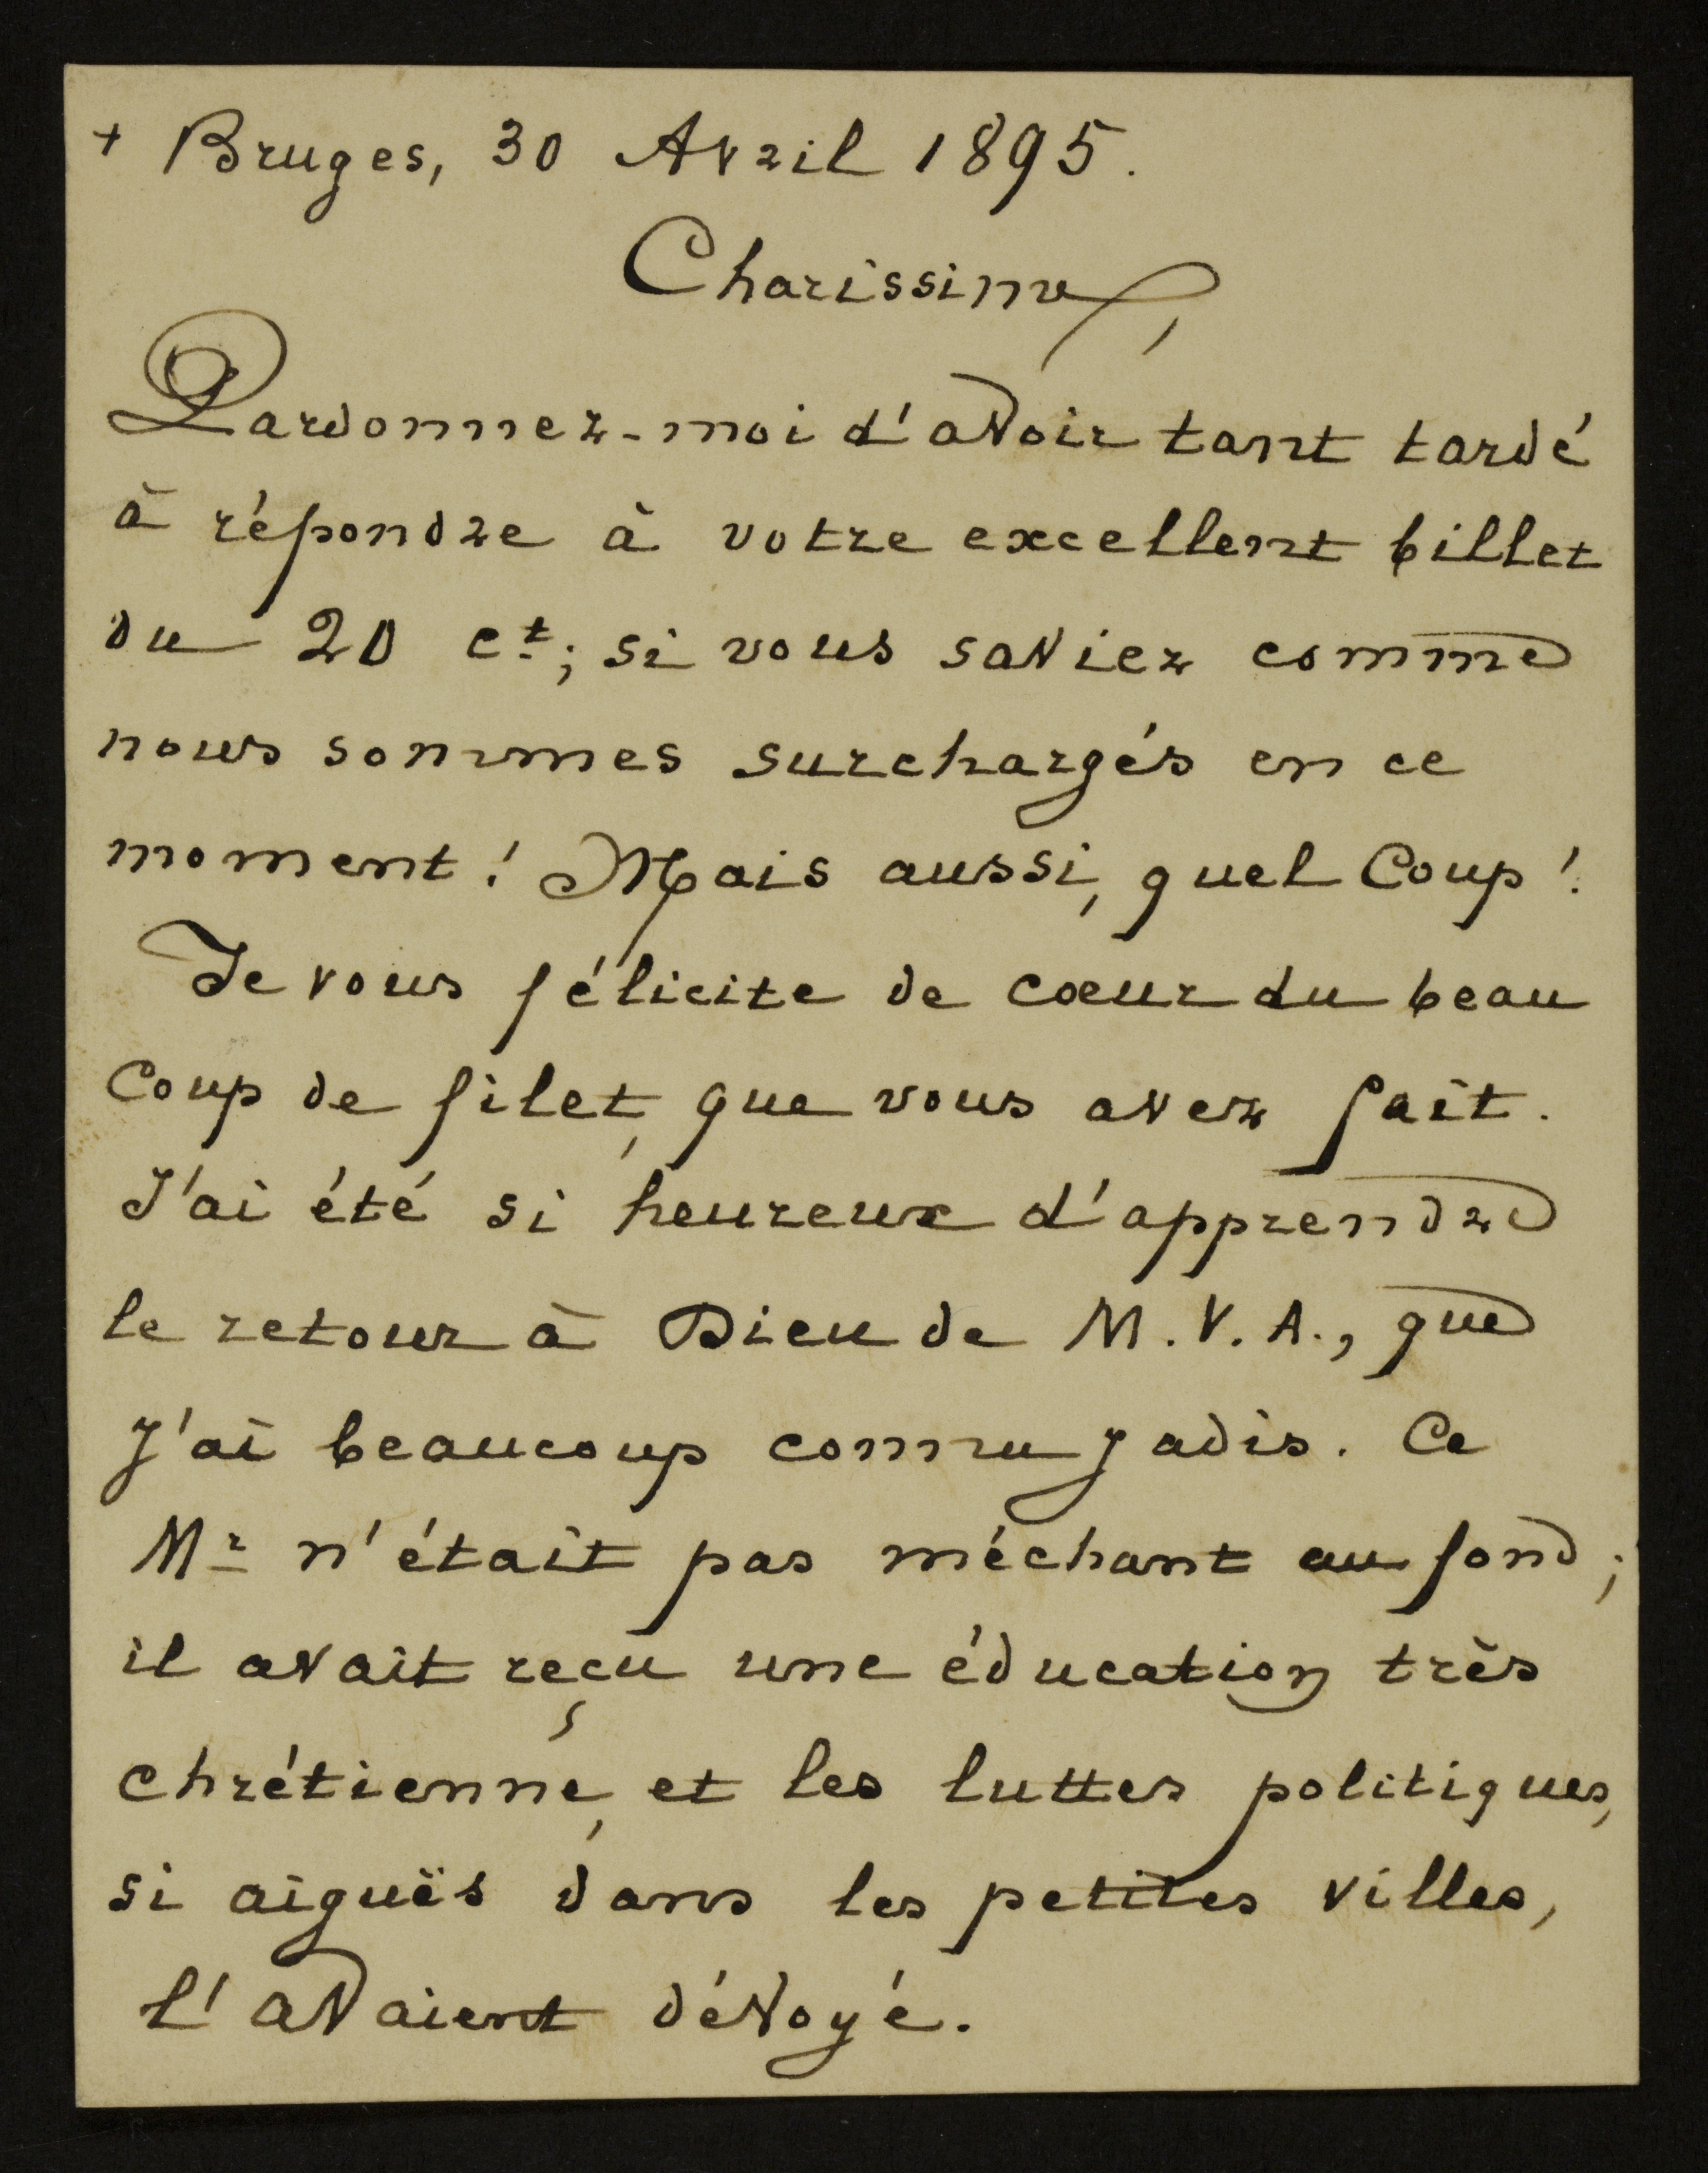 + Bruges, 30 Avril 1895.
Charissime,
Pardonnez-moi d'avoir tant tardé
à répondre à votre excellent billet
du 20 ct; si vous saviez comme
nous sommes surchargés en ce
moment! Mais aussi, quel Coup!
Je vous félicite de cœur du beau
Coup de filet, que vous avez fait.
J'ai été si heureux d'apprendre
le retour à Dieu de M. V. A., que
j'ai beaucoup connu jadis. Ce
Mr n'était pas méchant au fond;
il avait reçu une éducation très
chrétienne, et les luttes politiques,
si aiguës dans les petites villes,
l'avaient dévoyé.